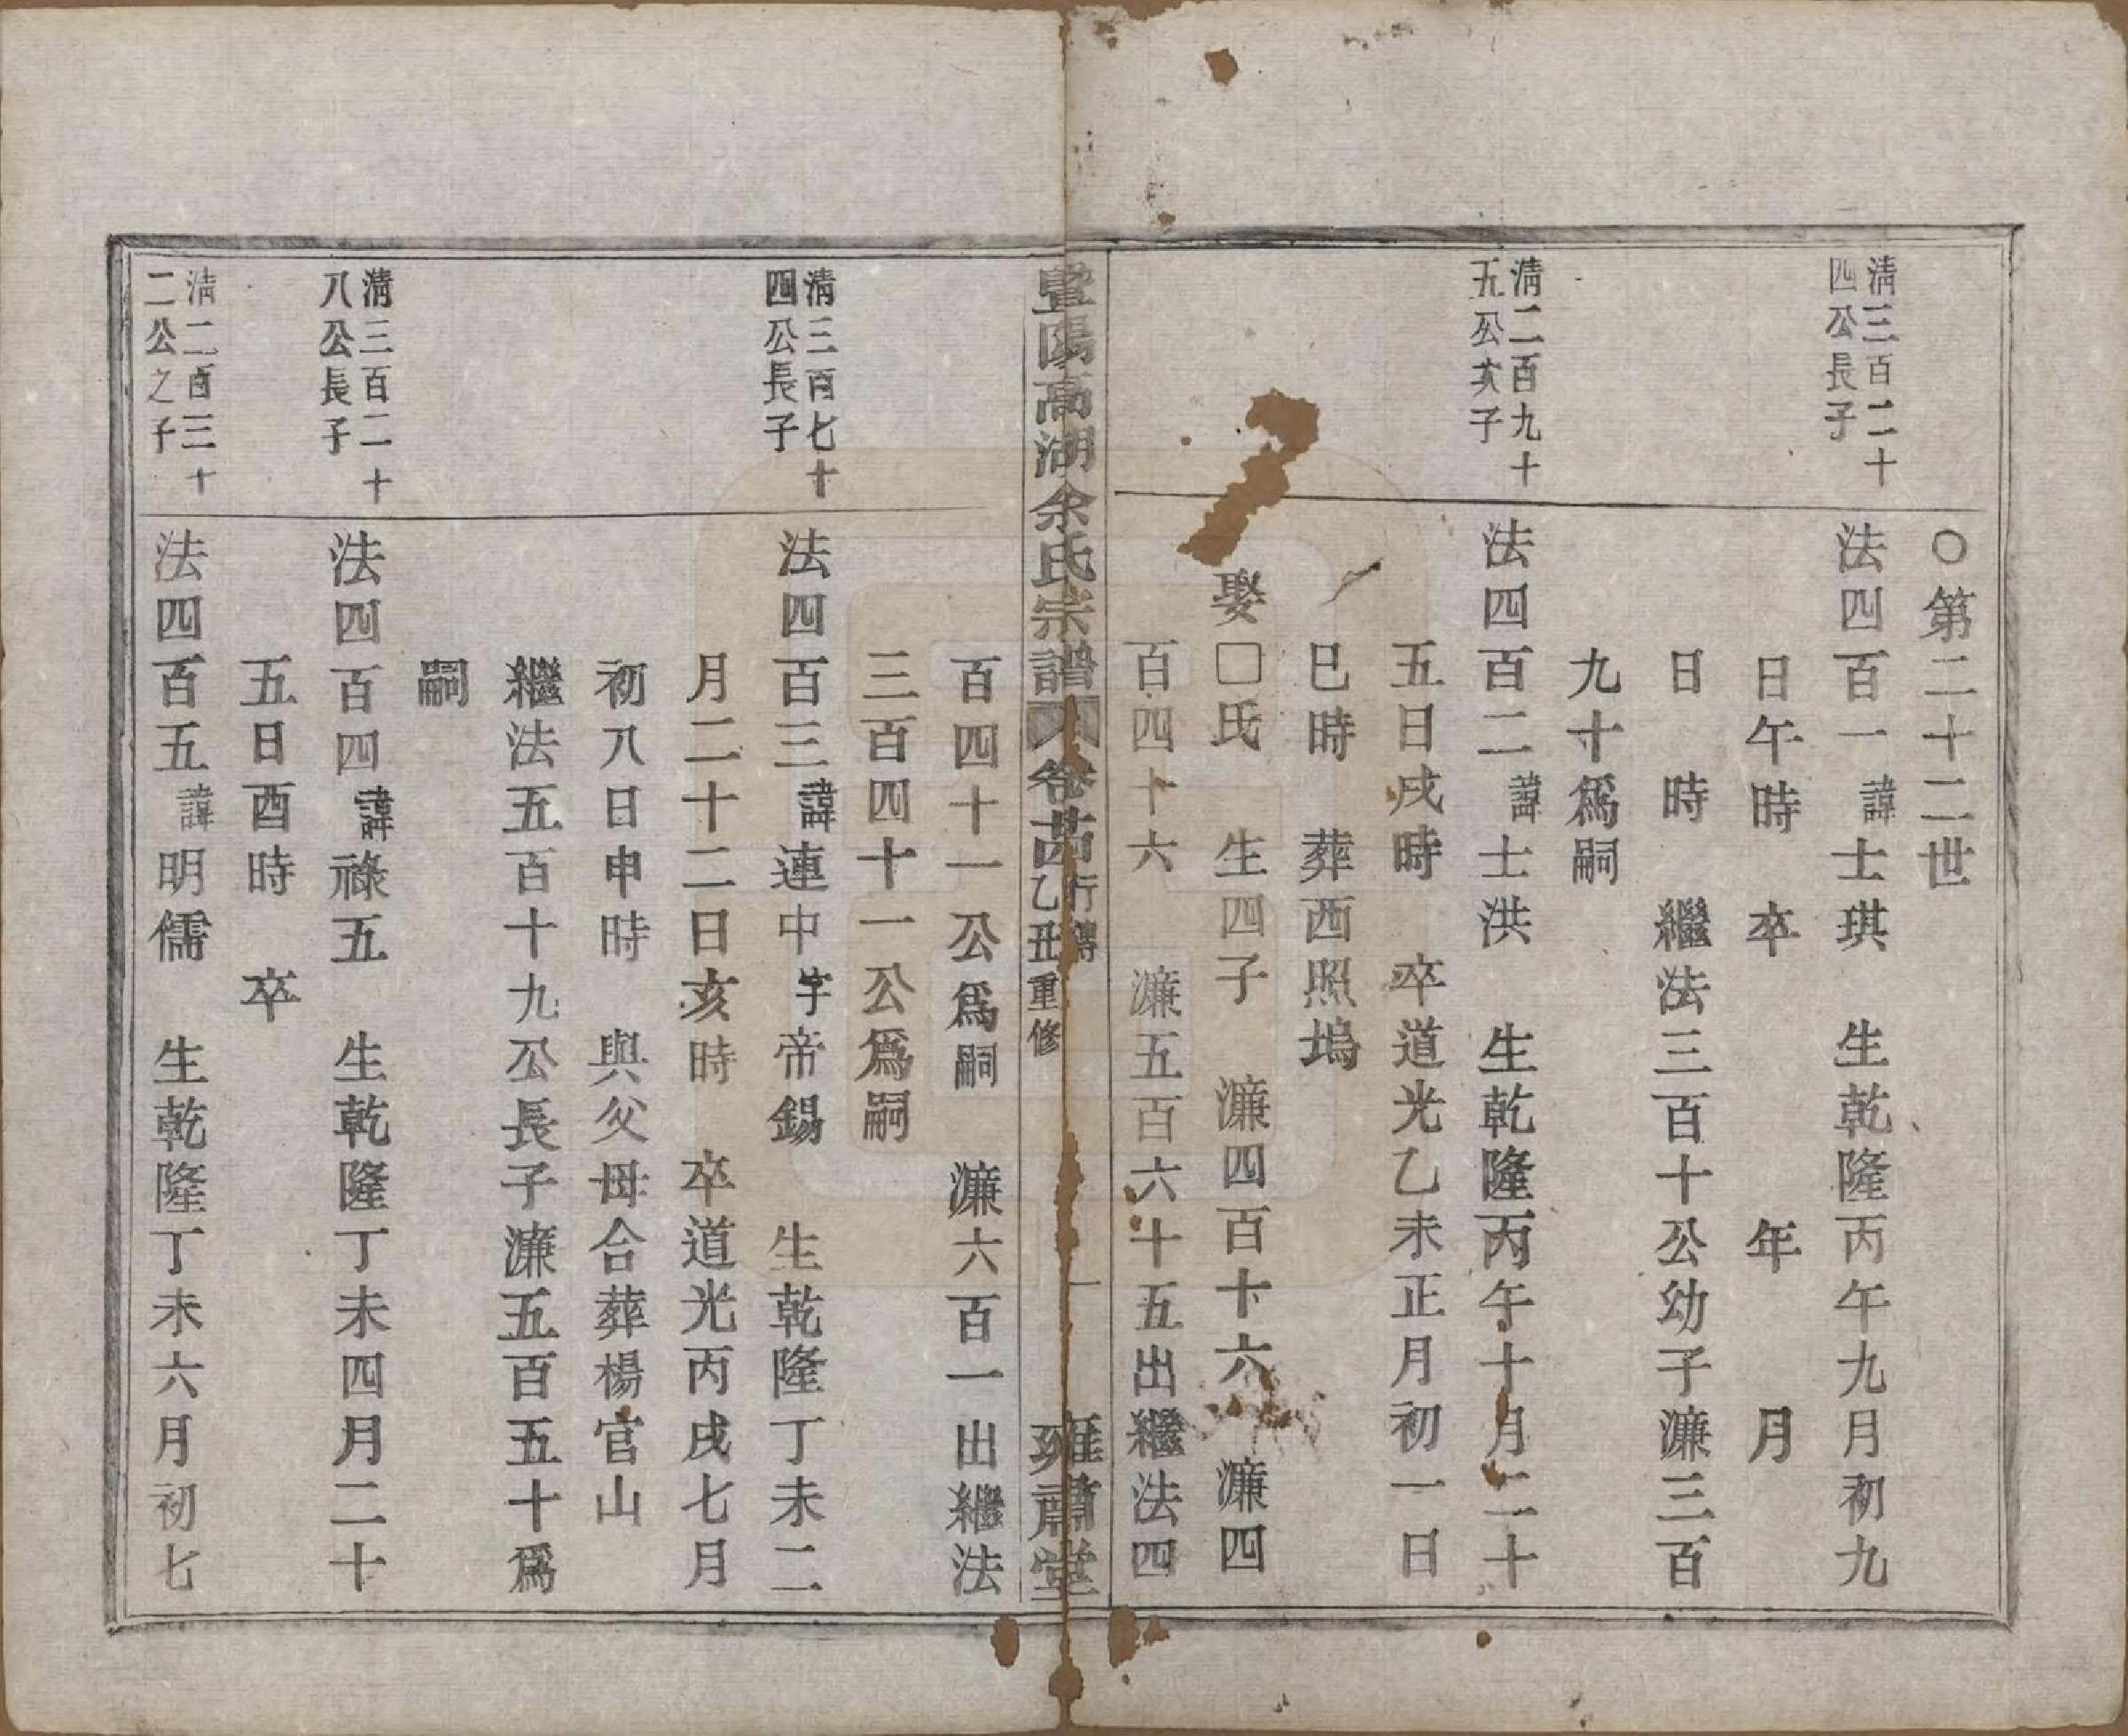 ○第二十二世
清三百二十
四公長子
法四百一諱士琪 生乾隆丙午九月初九
日午時 卒 年 月
日 時 繼法三百十公幼子濂三百
九十爲嗣
清二百九十
五公亥子
法四百二諱士洪 生乾隆丙午十月二十
五日戌時 卒道光乙未正月初一日
巳時 葬西照塢
娶□氏 生四子 濂四百十六 濂四
百四十六 濂五百六十五出繼法四
暨陽高湖余氏宗譜 卷 行傳 乙丑重修 一 雍肅堂
百四十一公爲嗣 濂六百一出繼法
三百四十一公爲嗣
清三百七十
四公長子
法四百三諱連中字帝錫 生乾隆丁未二
月二十二日亥時 卒道光丙戌七月
初八日申時 與父母合葬楊官山
繼法五百十九公長子濂五百五十爲
嗣
清三百二十
八公長子
法四百四諱祿五 生乾隆丁未四月二十
五日酉時 卒
清二百三十
二公之子
法四百五諱明儒 生乾隆丁未六月初七